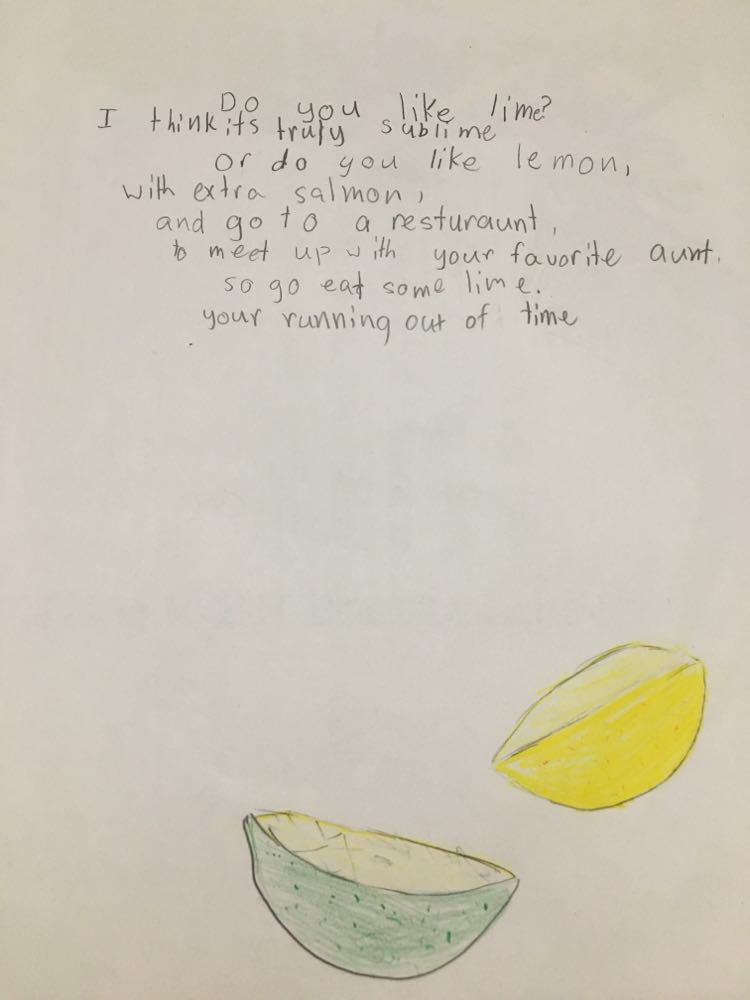 Do you like lime?
I think its truly sublime
or do you like lemon,
with extra salmon,
and go to a resturaunt,
to meet up with your favorite aunt.
so go eat some lime.
your running out of time